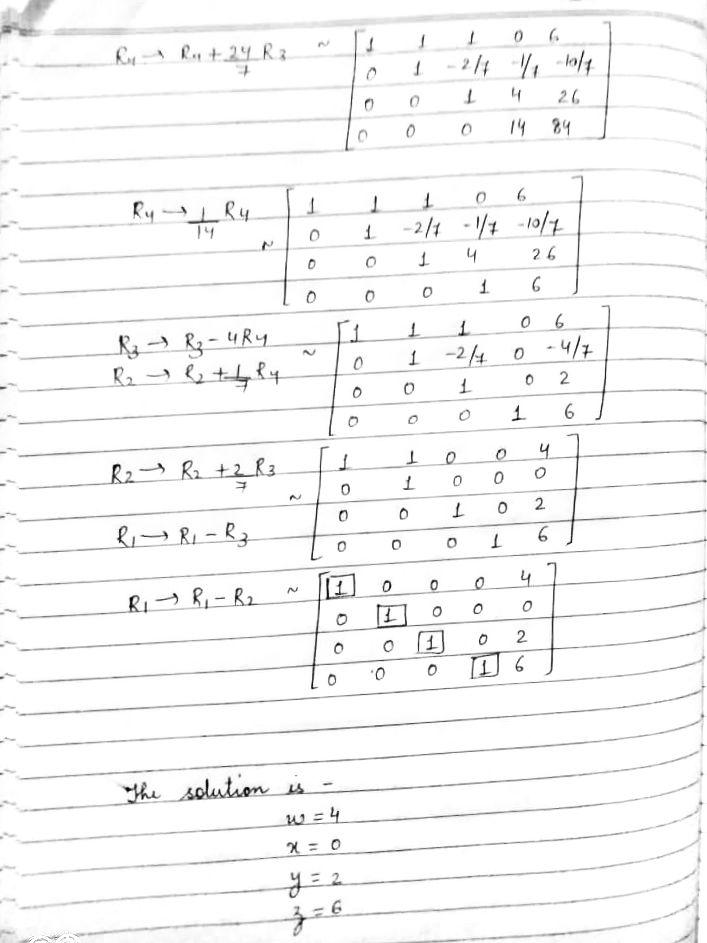 R₄ → R₄ + 24/7 R₃ ~ [ 1 1 1 0 6
0 1 -2/7 -1/7 -10/7
0 0 1 4 26
0 0 0 14 84 ]
R₄ → 1/14 R₄ ~ [ 1 1 1 0 6
0 1 -2/7 -1/7 -10/7
0 0 1 4 26
0 0 0 1 6 ]
R₃ → R₃ - 4R₄ ~ [ 1 1 1 0 6
R₂ → R₂ + 1/7 R₄ 0 1 -2/7 0 -4/7
0 0 1 0 2
0 0 0 1 6 ]
R₂ → R₂ + 2/7 R₃ ~ [ 1 1 0 0 4
0 1 0 0 0
R₁ → R₁ - R₃ 0 0 1 0 2
0 0 0 1 6 ]
R₁ → R₁ - R₂ ~ [ 1 0 0 0 4
0 1 0 0 0
0 0 1 0 2
0 0 0 1 6 ]
The solution is -
w = 4
x = 0
y = 2
z = 6